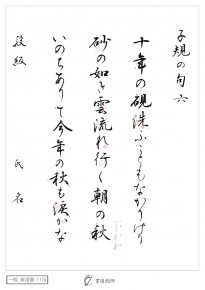 子規の句 六
十年の硯洗ふこともなかりけり
砂の如き雲流れ行く朝の秋
いのちありて今年の秋も涙かな
段級 氏名
一般 実用書 11月
書道教師